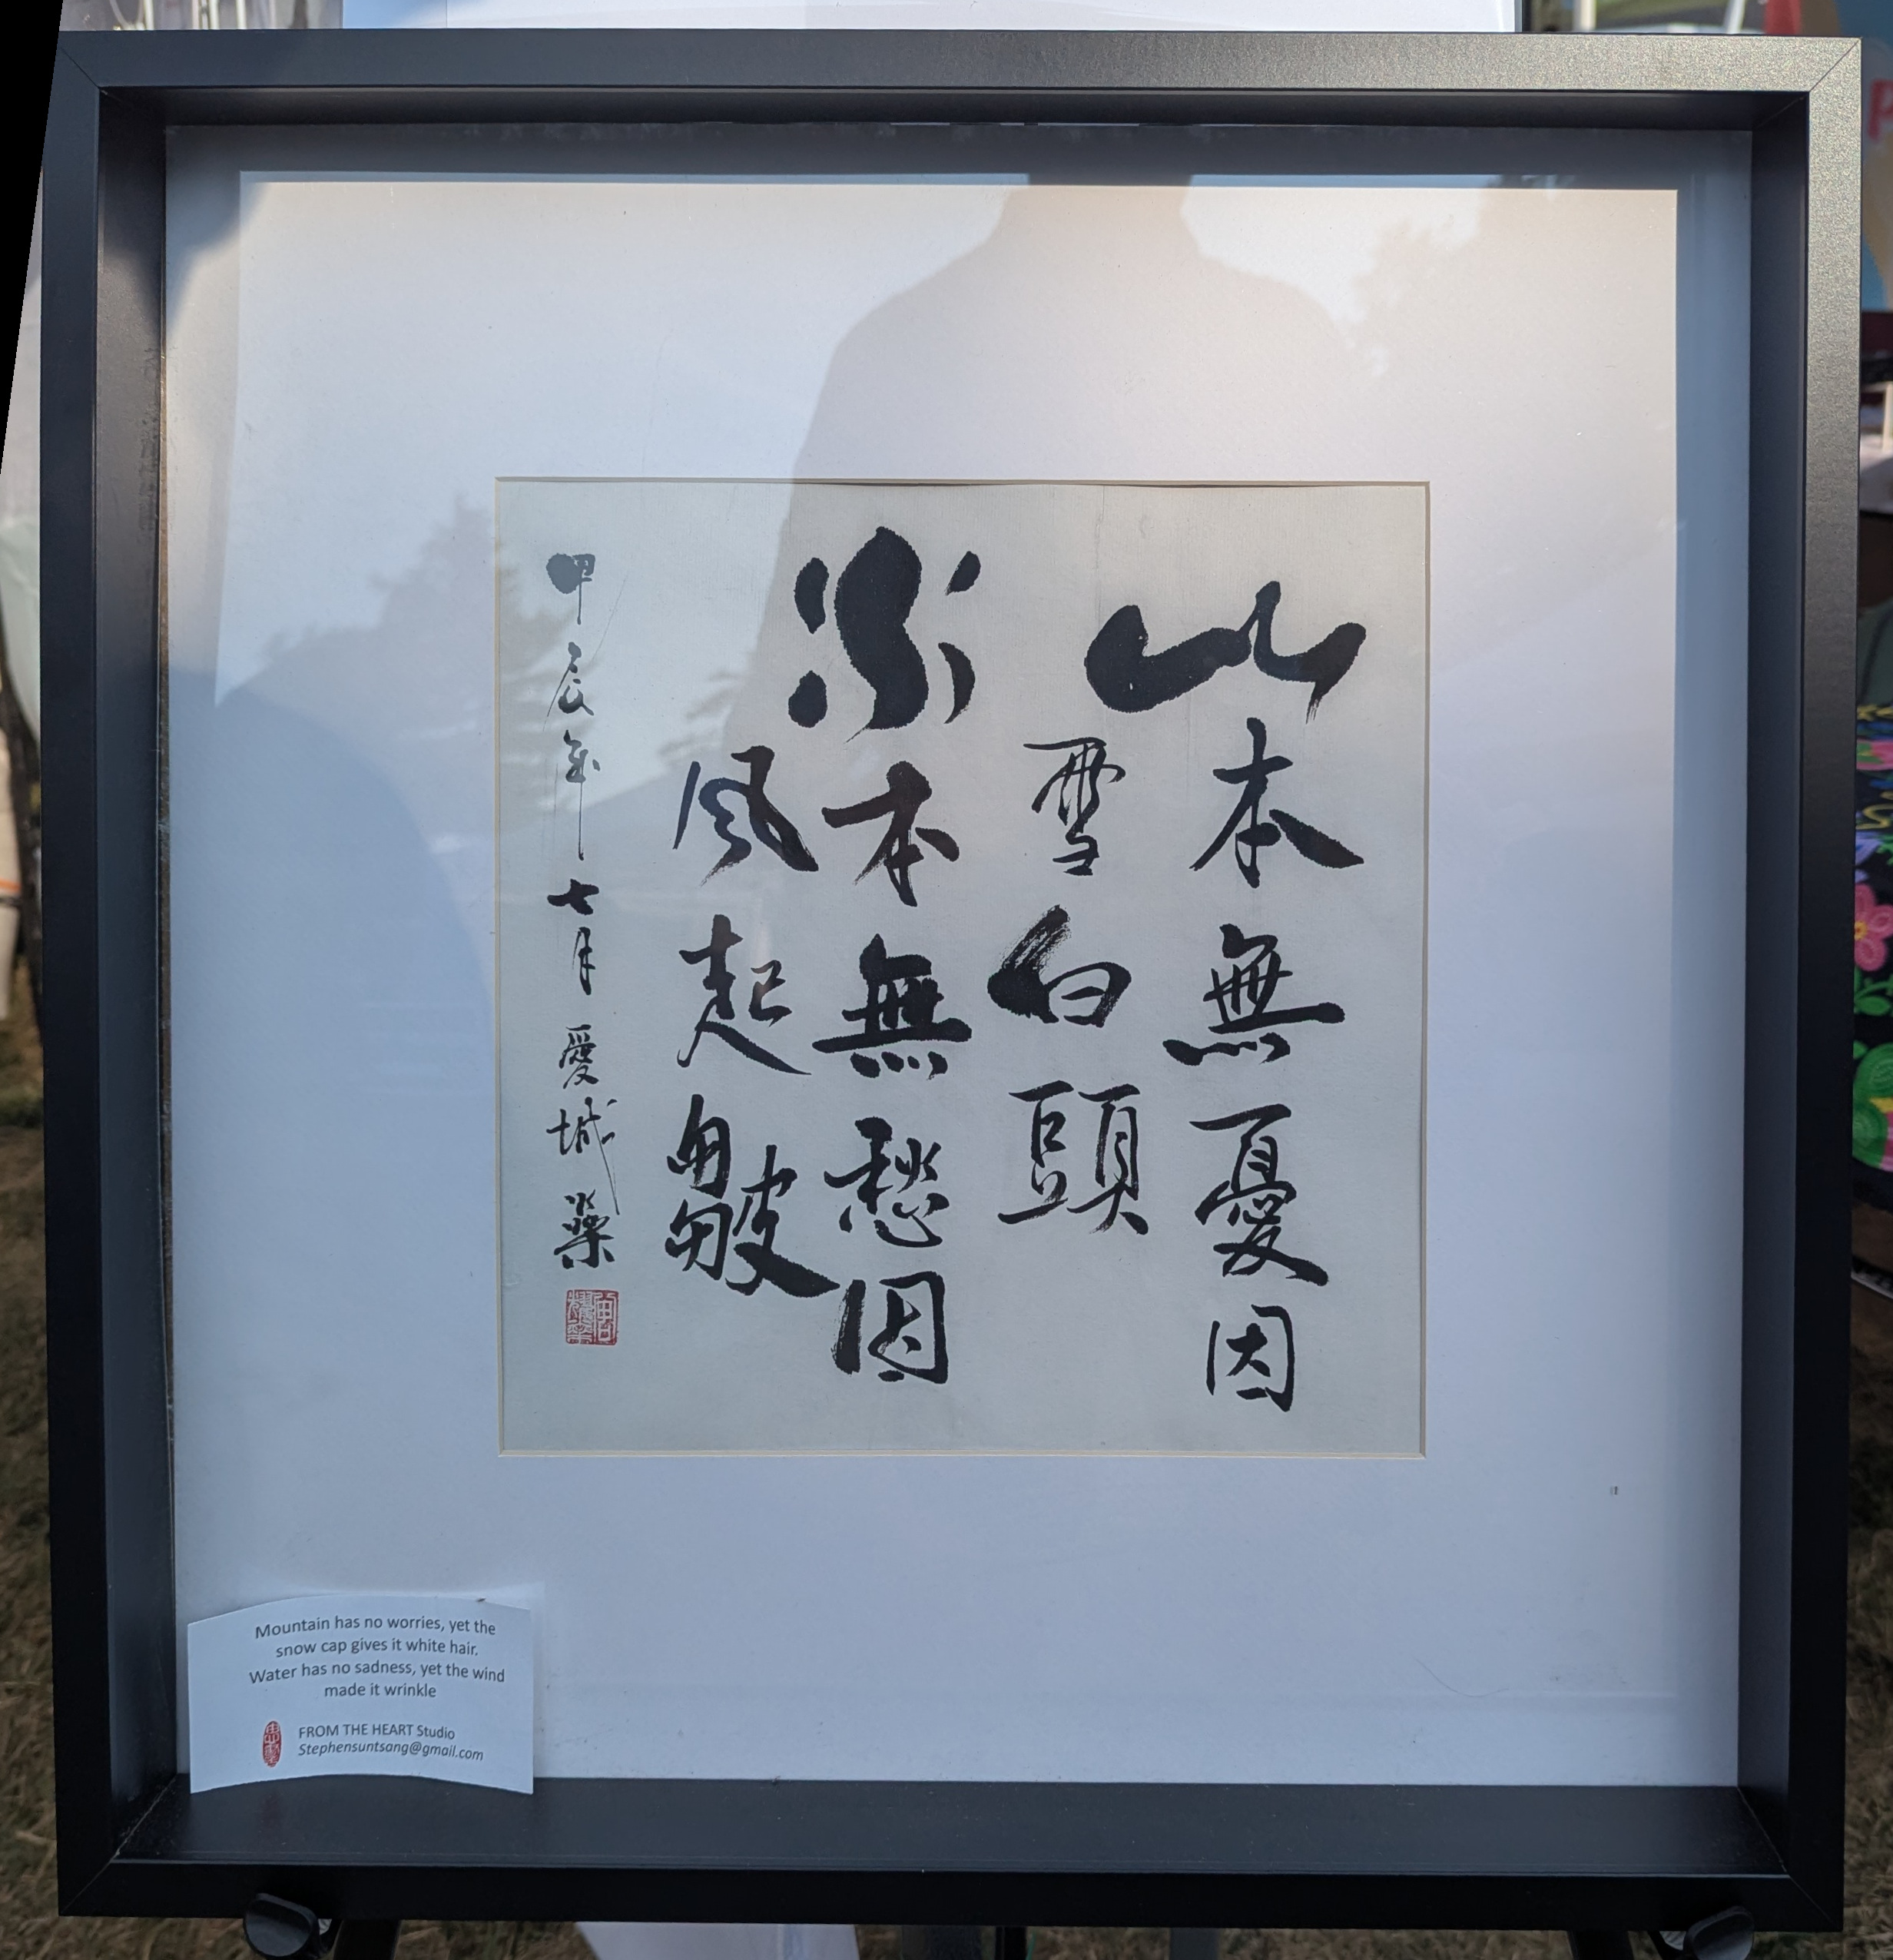 山本無憂因
雪白頭
水本無愁因
风起皺
甲辰年七月愛城
Mountain has no worries, yet the
snow cap gives it white hair.
Water has no sadness, yet the wind
made it wrinkle
FROM THE HEART Studio
Stephensuntsang@gmail.com